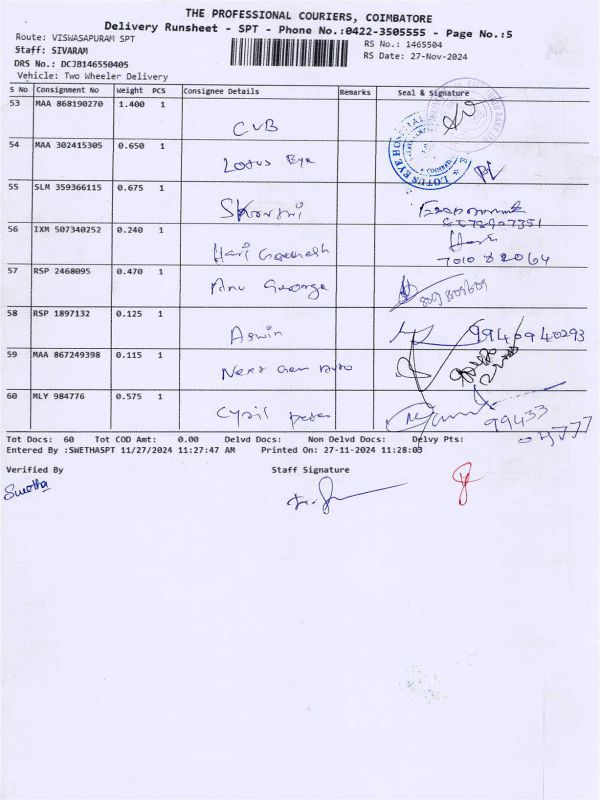 THE PROFESSIONAL COURIERS, COIMBATORE
Delivery Runsheet - SPT - Phone No.:0422-3505555 - Page No.:5
Route: VISWASAPURAM SPT
RS No.: 1465504
Staff: SIVARAM
RS Date: 27-Nov-2024
DRS No.: DCJB146550405
Vehicle: Two Wheeler Delivery
S No Consignment No Weight PCS Consignee Details Remarks Seal & Signature
53 MAA 868190270 1.400 1 CUB
54 MAA 302415305 0.650 1 Lotus Eye
LOTUS EYE HOSPITAL
55 SLM 359366115 0.675 1
56 IXM 507340252 0.240 1 Hari
57 RSP 2468095 0.470 1 Anu George
58 RSP 1897132 0.125 1 Aswin 9940940293
59 MAA 867249398 0.115 1 Next Gen
60 MLY 984776 0.575 1 Cyril 99433
04777
Tot Docs: 60 Tot COD Amt: 0.00 Delvd Docs: Non Delvd Docs: Delvy Pts:
Entered By :SWETHASPT 11/27/2024 11:27:47 AM Printed On: 27-11-2024 11:28:03
Verified By Staff Signature
Swetha